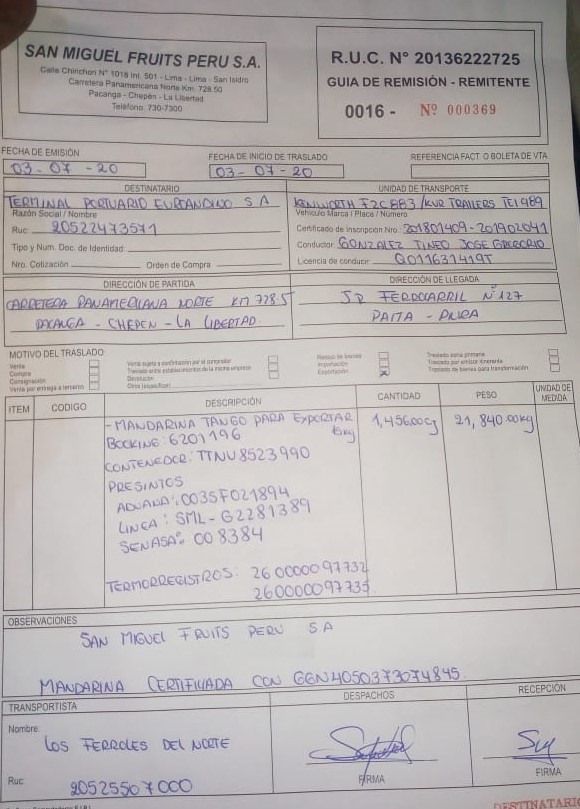 SAN MIGUEL FRUITS PERU S.A.
Calle Chinchon N° 1018 Int. 501 - Lima - Lima - San Isidro
Carretera Panamericana Norte Km. 728.50
Pacanga - Chepén - La Libertad
Teléfono: 730-7300
R.U.C. N° 20136222725
GUIA DE REMISIÓN - REMITENTE
0016 - Nº 000369
FECHA DE EMISIÓN
03-07-20
FECHA DE INICIO DE TRASLADO
03-07-20
REFERENCIA FACT. O BOLETA DE VTA.
DESTINATARIO
TERMINAL PORTUARIO EUROANDINO S A
Razón Social / Nombre
Ruc: 20522473571
Tipo y Num. Doc. de Identidad:
Nro. Cotización: Orden de Compra:
UNIDAD DE TRANSPORTE
KENWORTH F2C883 / KUR TRAILERS TE1989
Vehiculo Marca / Placa / Número
Certificado de Inscripción Nro. 201801409-201902041
Conductor: GONZALEZ TINEO JOSE GREGORIO
Licencia de conducir: Q011631419T
DIRECCIÓN DE PARTIDA
CARRETERA PANAMERICANA NORTE KM 728.5
PACANGA - CHEPEN - LA LIBERTAD.
DIRECCIÓN DE LLEGADA
JR FERROCARRIL N° 127
PAITA - PIURA
MOTIVO DEL TRASLADO:
Venta
Compra
Consignación
Venta por entrega a terceros
Venta sujeta a confirmación por el comprador
Traslado entre establecimientos de la misma empresa
Devolución
Otros (especificar)
Recojo de bienes
Importación
Exportación X
Traslado zona primaria
Traslado por emisor itinerante
Traslado de bienes para transformación
ITEM CODIGO DESCRIPCIÓN CANTIDAD PESO UNIDAD DE MEDIDA
- MANDARINA TANGO PARA EXPORTAR 1,456.00cj 21,840.00kg
BOOKING: 6201196 15kg
CONTENEDOR: TTNU 8523990
PRESINTOS
ADUANA: 0035F021894
LINEA: SML-G2281389
SENASA: 008384
TERMORREGISTROS: 260000097732
2600000097735
OBSERVACIONES
SAN MIGUEL FRUITS PERU S A
MANDARINA CERTIFICADA CON GGN4050373074845.
TRANSPORTISTA
Nombre:
LOS FERROLES DEL NORTE
Ruc: 20525507000
DESPACHOS
FIRMA
RECEPCIÓN
FIRMA
DESTINATARIO